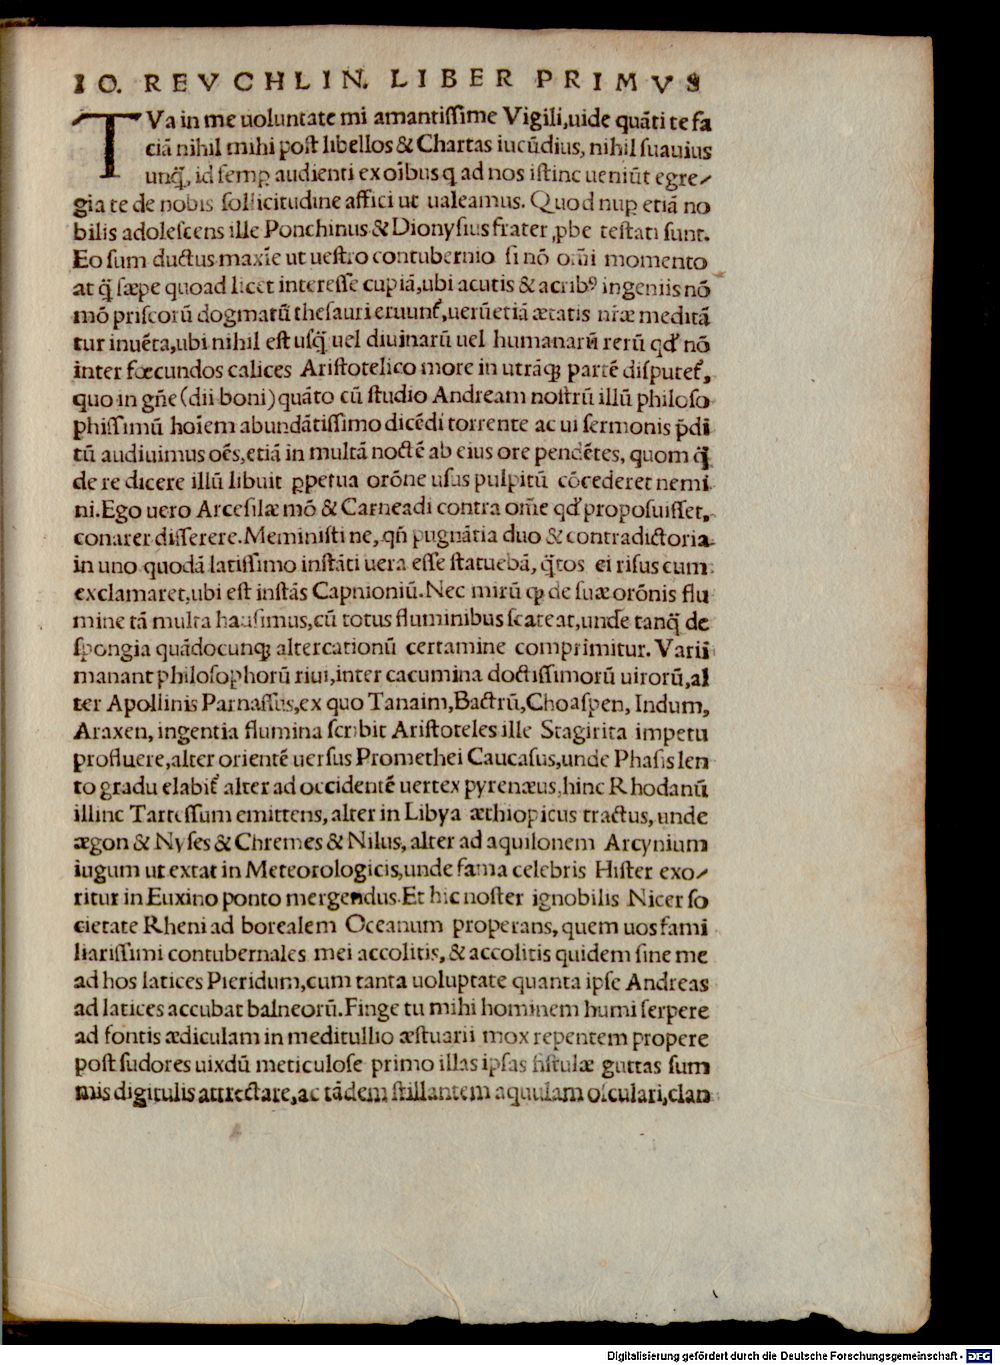 IO. REVCHLIN. LIBER PRIMVS
TVa in me uoluntate mi amantissime Vigili,uide quãti te fa
ciã nihil mihi post libellos & Chartas iucũdius, nihil suauius
unq̃, id semꝑ audienti ex oĩbus q ad nos istinc ueniũt egre⸗
gia te de nobis sollicitudine affici ut ualeamus. Quod nuꝑ etiã no
bilis adolescens ille Ponchinus & Dionysius frater ꝓbe testati sunt.
Eo sum ductus maxĩe ut uestro contubernio si nõ oĩni momento
at q̃ sæpe quoad licet interesse cupiã,ubi acutis & acribꝰ ingeniis nõ
mõ priscorũ dogmatũ thesauri eruunt᷑, uerũetiã ætatis nr̃æ meditã
tur inuẽta,ubi nihil est usq̃ uel diuinarũ uel humanarũ rerũ qd᷑ nõ
inter fœcundos calices Aristotelico more in utrãqꝫ partẽ disputet᷑,
quo in gñe (dii boni) quãto cũ studio Andream nostrũ illũ philoso
phissimũ hoĩem abundãtissimo dicẽdi torrente ac ui sermonis p̃di
tũ audiuimus oẽs,etiã in multã noctẽ ab eius ore pendẽtes, quom q̃
de re dicere illũ libuit ꝑpetua orõne usus pulpitũ cõcederet nemi
ni.Ego uero Arcesilæ mõ & Carneadi contra om̃e qd᷑ proposuisset,
conarer disserere.Meministi ne, qñ pugnãtia duo & contradictoria
in uno quodã latissimo instãti uera esse statuebã, q̃tos ei risus cum
exclamaret,ubi est instãs Capnioniũ.Nec mirũ ꝙ de suæ orõnis flu
mine tã multa hausimus,cũ totus fluminibus scateat,unde tanq̃ de
spongia quãdocunqꝫ altercationũ certamine comprimitur. Varii
manant philosophorũ riui,inter cacumina doctissimorũ uirorũ,al
ter Apollinis Parnassus,ex quo Tanaim,Bactrũ,Choaspen, Indum,
Araxen, ingentia flumina scribit Aristoteles ille Stagirita impetu
profluere,alter orientẽ uersus Promethei Caucasus,unde Phasis len
to gradu elabit᷑ alter ad occidentẽ uertex pyrenæus,hinc Rhodanũ
illinc Tartessum emittens, alter in Libya æthiopicus tractus, unde
ægon & Nyses & Chremes & Nilus, alter ad aquilonem Arcynium
iugum ut extat in Meteorologicis,unde fama celebris Hister exo⸗
ritur in Euxino ponto mergendus.Et hic noster ignobilis Nicer so
cietate Rheni ad borealem Oceanum properans, quem uos fami
liarissimi contubernales mei accolitis, & accolitis quidem sine me
ad hos latices Pieridum,cum tanta uoluptate quanta ipse Andreas
ad latices accubat balneorũ.Finge tu mihi hominem humi serpere
ad fontis ædiculam in meditullio æstuarii mox repentem propere
post sudores uixdũ meticulose primo illas ipsas fistulæ guttas sum
mis digitulis attrectare,ac tãdem stillantem aquulam osculari,clan
Digitalisierung gefördert durch die Deutsche Forschungsgemeinschaft - DFG